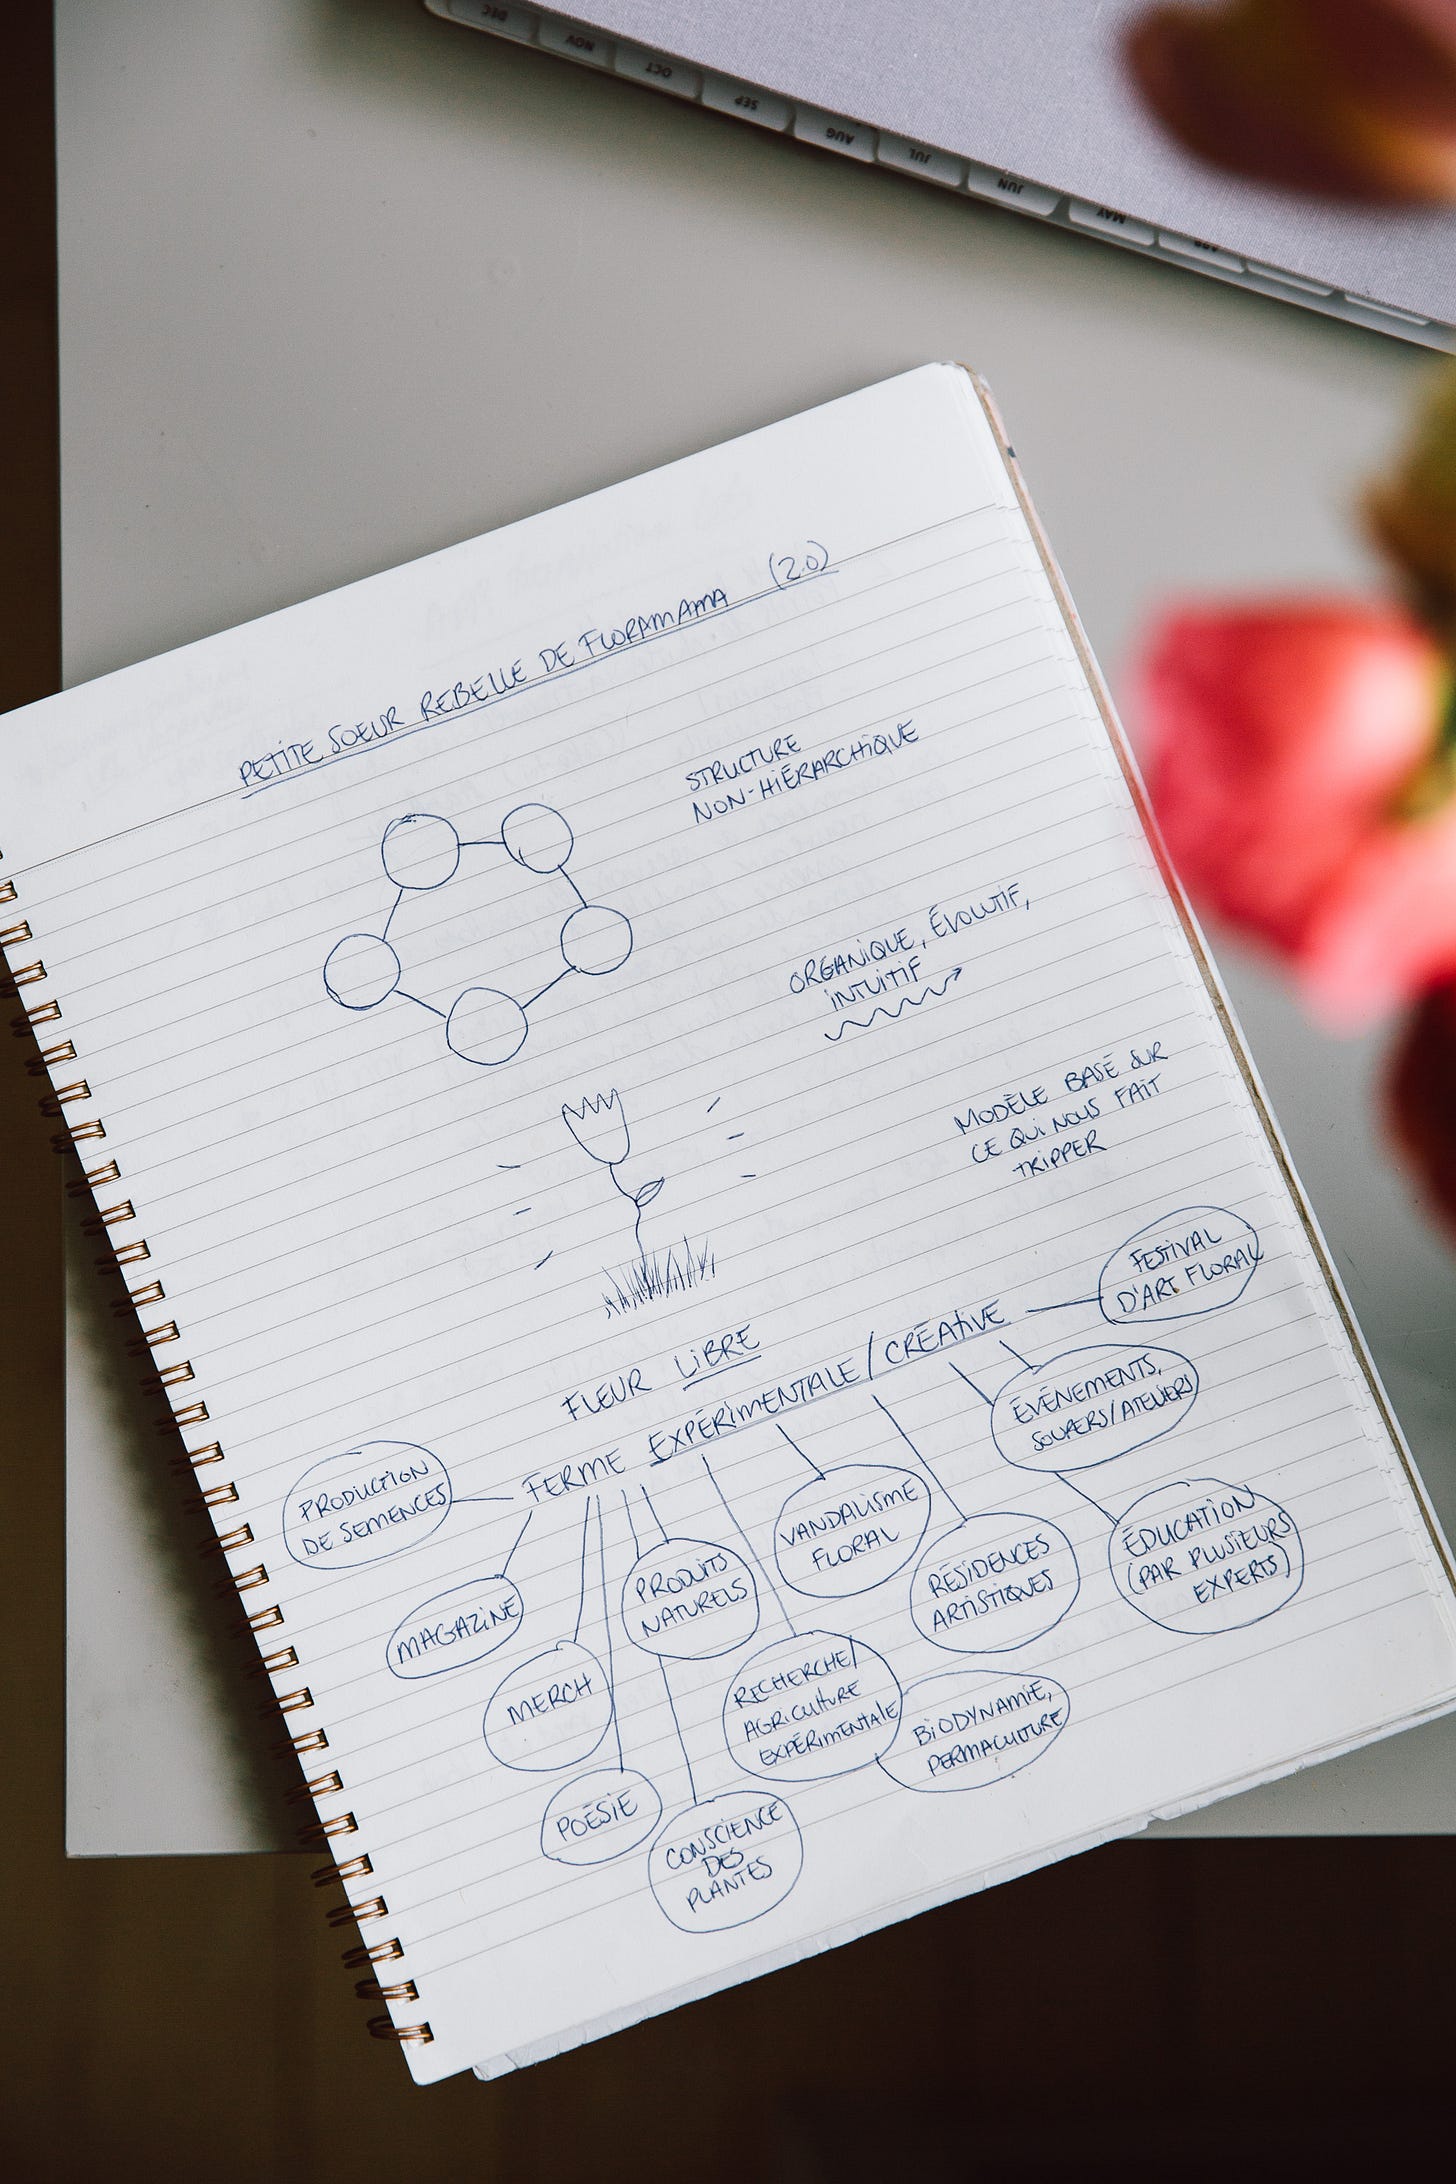 DEC
NOV
OCT
SEP
AUG
JUL
JUN
MAY
APR
PETITE SOEUR REBELLE DE FLORAMAMA (2.0)
STRUCTURE
NON-HIÉRARCHIQUE
ORGANIQUE, ÉVOLUTIF,
INTUITIF
MODÈLE BASÉ SUR
CE QUI NOUS FAIT
TRIPPER
FLEUR LIBRE
FERME EXPÉRIMENTALE/CRÉATIVE
FESTIVAL
D'ART FLORAL
ÉVÉNEMENTS,
SOUPERS/ATELIERS
ÉDUCATION
(PAR PLUSIEURS
EXPERTS)
PRODUCTION
DE SEMENCES
MAGAZINE
MERCH
POÉSIE
PRODUITS
NATURELS
CONSCIENCE
DES
PLANTES
RECHERCHE/
AGRICULTURE
EXPÉRIMENTALE
BIODYNAMIE,
PERMACULTURE
VANDALISME
FLORAL
RÉSIDENCES
ARTISTIQUES